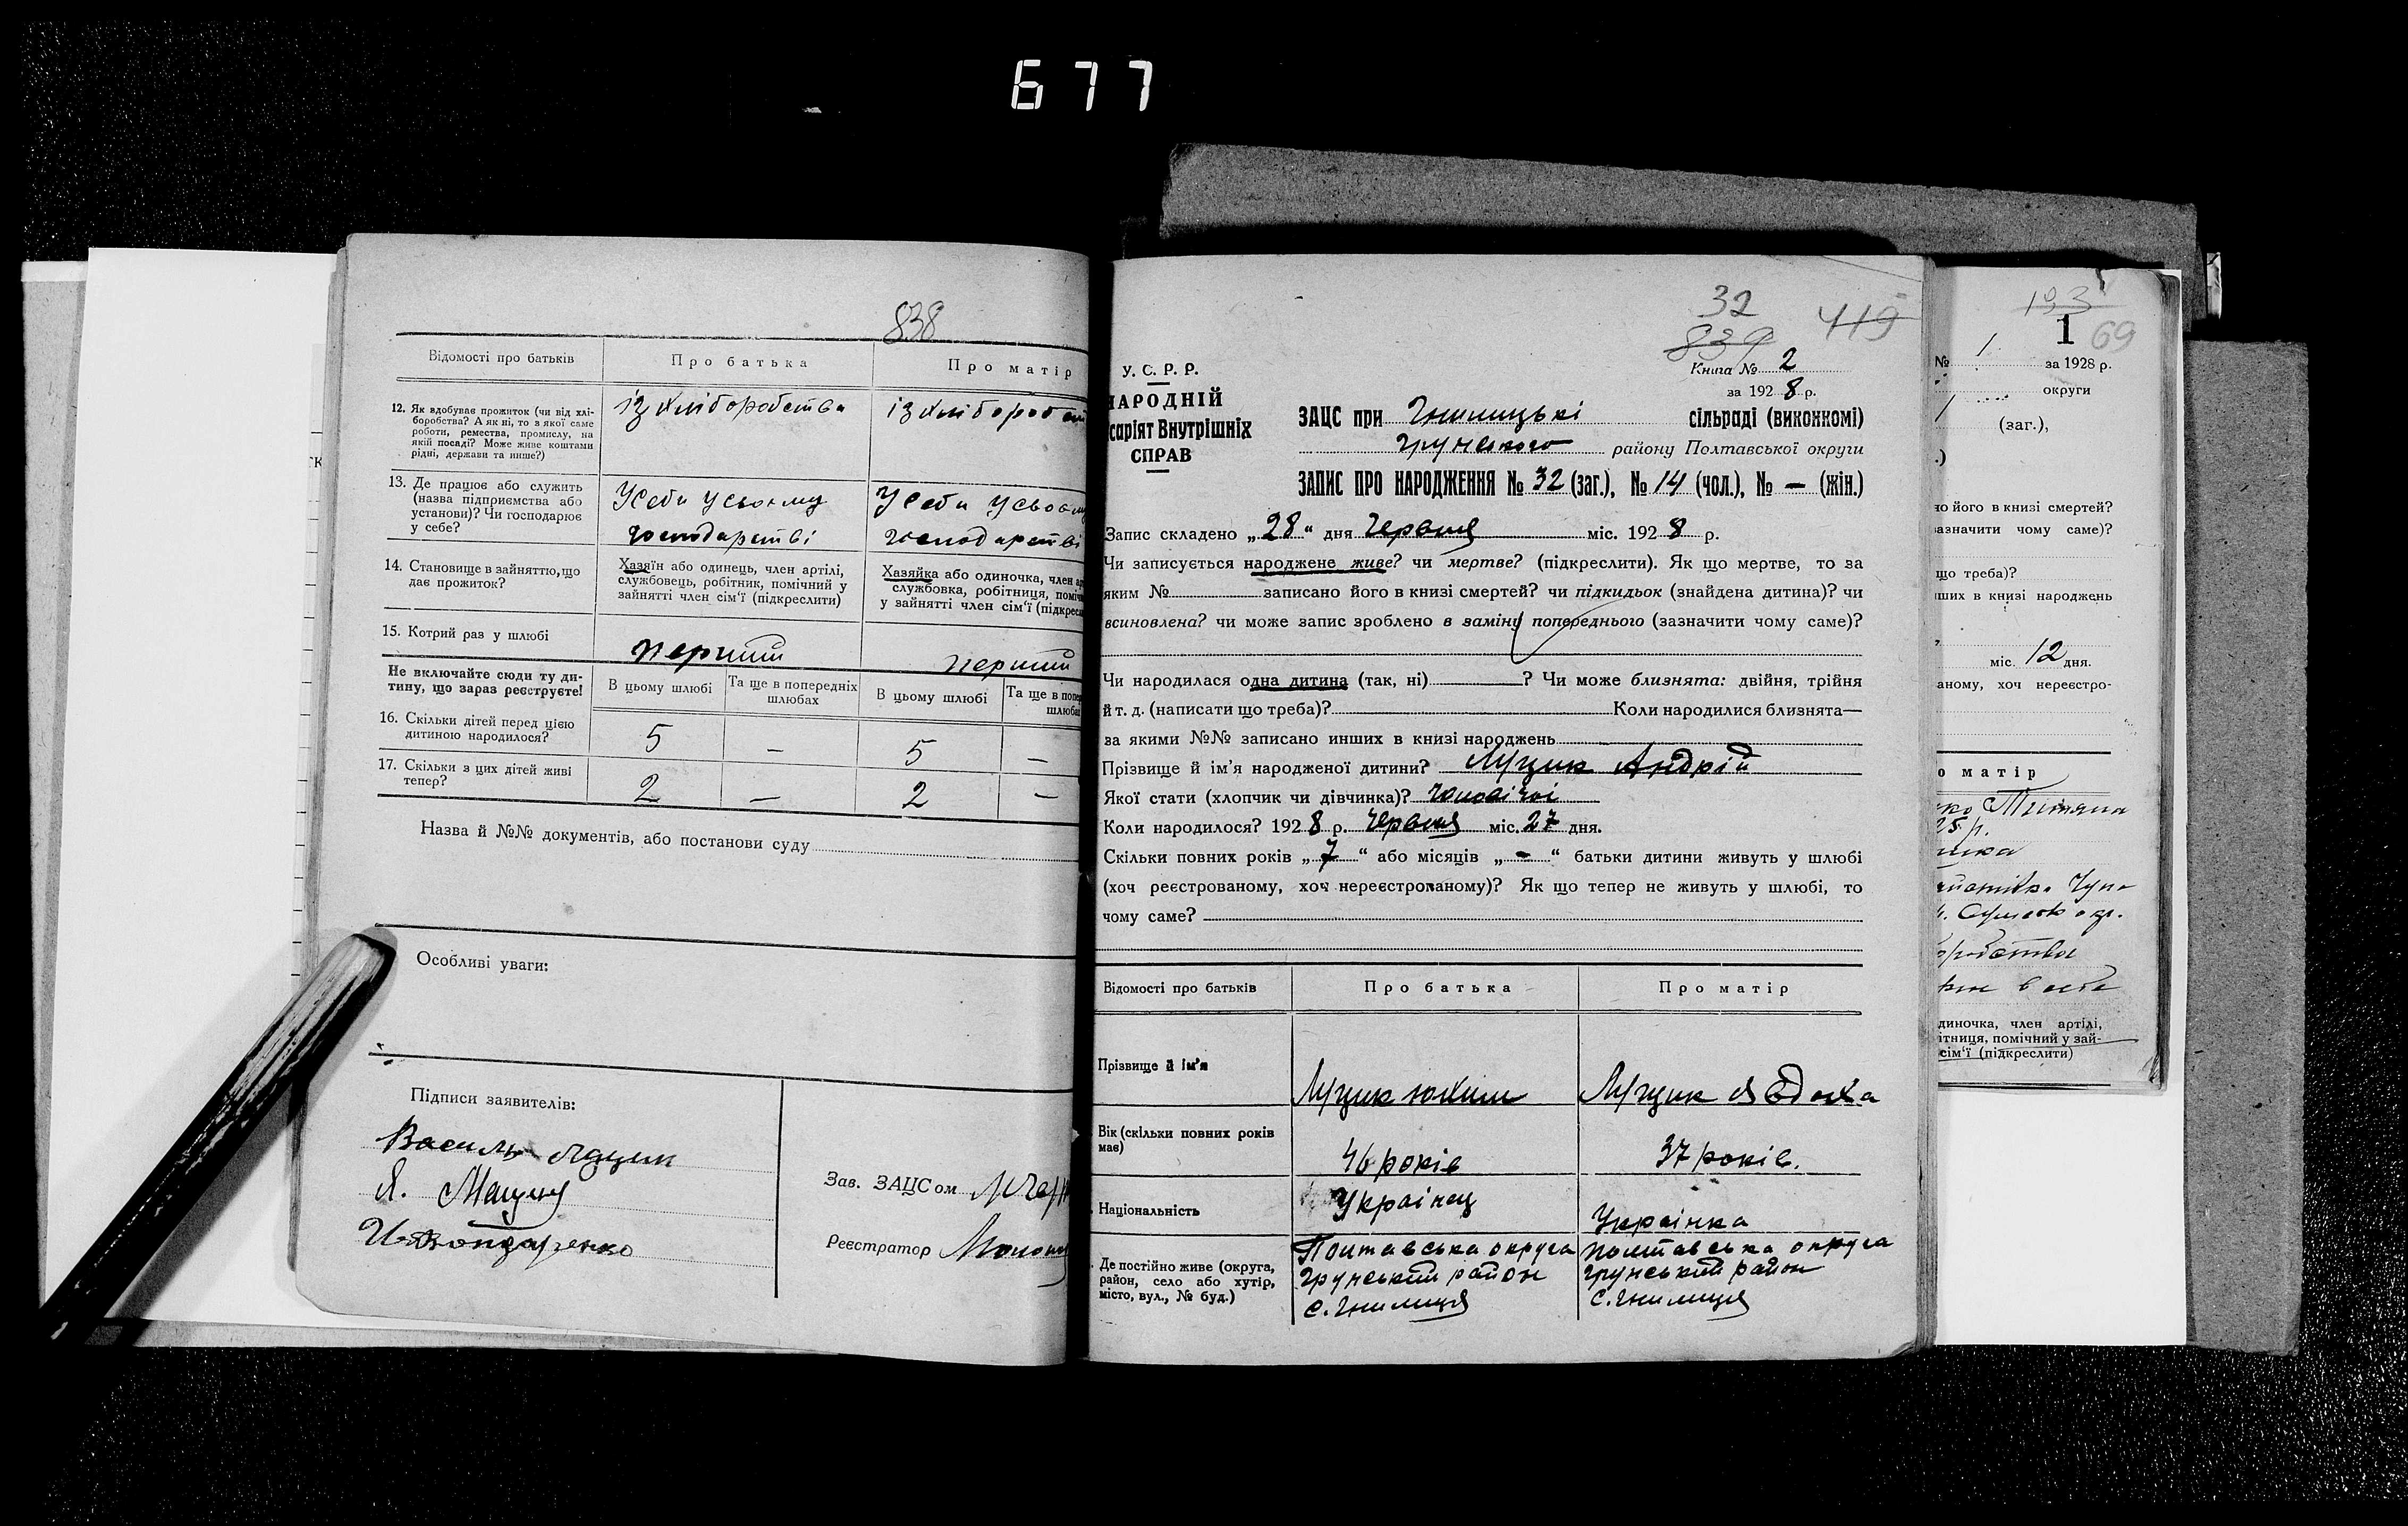 677
838
Відомості про батьків
Про батька
Про матір
12. Як вдобуває прожиток (чи від хлі-
боробства? А як ні, то з якої саме
роботи, ремества, промислу, на
якій посаді? Може живе коштами
рідні, держави та инше?)
із хліборобства
із хлібороб
13. Де працює або служить
(назва підприємства або
установи)? Чи господарює
у себе?
У себи у своєму
господарстві
У себи у своєму
господарстві
14. Становище в зайняттю, що
дає прожиток?
Хазяїн або одинець, член артілі,
службовець, робітник, помічний у
зайнятті член сім'ї (підкреслити)
Хазяйка або одиночка, член ар
службовка, робітниця, поміч
у зайнятті член сім'ї (підкресл
15. Котрий раз у шлюбі
перший
перший
Не включайте сюди ту ди-
тину, що зараз реєструєте!
В цьому шлюбі
Та ще в попередніх
шлюбах
В цьому шлюбі
Та ще в попер
шлюбах
16. Скільки дітей перед цією
дитиною народилося?
5 — 5 —
17. Скільки з цих дітей живі
тепер?
2 — 2 —
Назва й №№ документів, або постанови суду
Особливі уваги:
Підписи заявителів:
Василь Лацик
Я.
И Бондаренко
Зав. ЗАЦСом
Реєстратор
32
839 419
Книга № 2
за 1928 р.
У. С. Р. Р.
НАРОДНІЙ
саріят Внутрішніх
СПРАВ
ЗАЦС при Гнилицькі сільраді (виконкомі)
Грунського району Полтавської округи
ЗАПИС ПРО НАРОДЖЕННЯ № 32 (заг.), № 14 (чол.), № — (жін.)
Запис складено „28" дня Червня міс. 1928 р.
Чи записується народжене живе? чи мертве? (підкреслити). Як що мертве, то за
яким № записано його в книзі смертей? чи підкидьок (знайдена дитина)? чи
всиновлена? чи може запис зроблено в заміну попереднього (зазначити чому саме)?
Чи народилася одна дитина (так, ні) ? Чи може близнята: двійня, трійня
й т. д. (написати що треба)? Коли народилися близнята—
за якими №№ записано инших в книзі народжень
Прізвище й ім'я народженої дитини? Луцик Андрій
Якої стати (хлопчик чи дівчинка)? Чоловічої
Коли народилося? 1928 р. Червня міс. 27 дня.
Скільки повних років „7" або місяців „-" батьки дитини живуть у шлюбі
(хоч реєстрованому, хоч нереєстрованому)? Як що тепер не живуть у шлюбі, то
чому саме?
Відомості про батьків
Про батька
Про матір
Прізвище й ім'я
Луцик Юхим
Луцик Явдоха
Вік (скільки повних років
має)
46 років
37 років.
Національність
Українец
Українка
Де постійно живе (округа,
район, село або хутір,
місто, вул., № буд.)
Полтавська округа
Грунський район
с. Гнилиця
Полтавська округа
Грунський район
с. Гнилиця
193
1 69
№ 1 за 1928 р.
округи
(заг.),
но його в книзі смертей?
зазначити чому саме)?
що треба)?
нших в книзі народжень
міс. 12 дня.
аному, хоч нереєстро-
о матір
Тетяна
25 р.
диночка, член артілі,
ітниця, помічний у зай-
сім'ї (підкреслити)